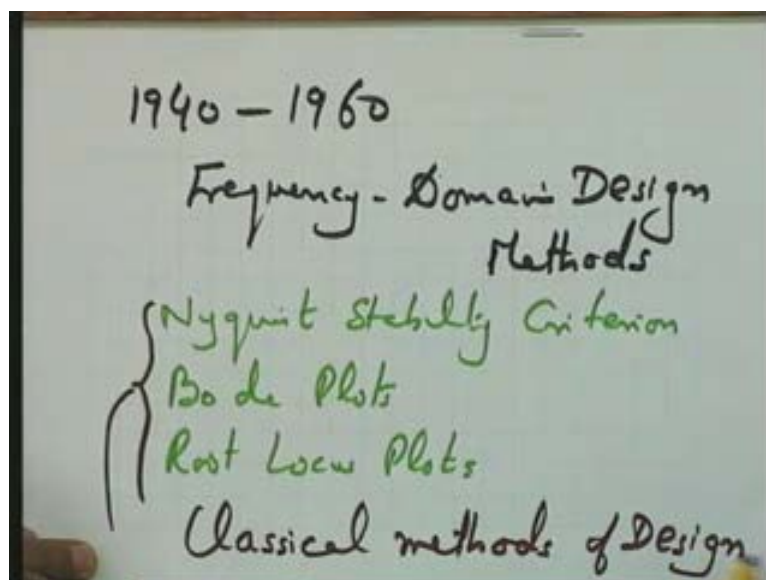 1940 - 1960
Frequency - Domain Design
Methods
Nyquist Stability Criterion
Bode Plots
Root Locus Plots
Classical methods of Design